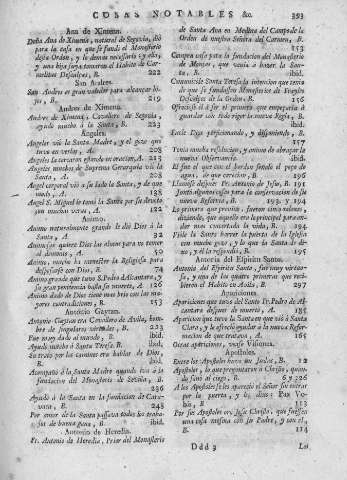 COSAS NOTABLES &c. 393
Ana de Ximena.
Doña Ana de Ximena, natural de Segovia, diò
para la casa en que se fundò el Monasterio
desta Orden, y lo demàs necessario y ella,
y una hija suya tomaron el Habito de Car-
melitas Descalças, B. 222
San Andres.
San Andres es gran valedor para alcançar hi-
jos, B. 219
Andres de Ximena.
Andres de Ximena, Cavallero de Segovia,
ayudò mucho à la Santa, B. 223
Angeles.
Angeles viò la Santa Madre, y el goze que
tuvo en verlos, A.
Angeles la cercaron estando en oracion, A. 213
Angeles muchos de Suprema Gerarquia viò la
Santa, A. 208
Angel corporal viò à su lado la Santa, y de que
modo, A. 138
Angel S. Miguel le tomò la Santa por su devoto
A. 122
Animo.
Animo notablemente grande le diò Dios à la
Santa, A 32
Animo que quiere Dios las almas para no temer
al demonio, A. 50
Animo, mucho ha menester la Religiosa para
A. 74
Animo grande que tuvo S. Pedro Alcantara, y
su gran penitencia hasta su muerte, A. 126
Animo dado de Dios tiene mas brio con las ma-
yores contradiciones, B. 153
Antonio Gaytan.
Antonio Gaytan era Cavallero de Avila, hom-
bre de singulares virtudes, B. 223
Fue muy dado al mundo, B. ibid.
Ayudò mucho à Santa Teresa, B. ibid.
Su trato por los caminos era hablar de Dios,
B. ibid.
Acompañò à la Santa Madre quando iva à la
fundacion del Monasterio de Segovia, B.
236
Ayudò à la Santa en la fundacion de Cara-
vaca, B. 248
Por amor de la Santa passava todos los traba-
jos de buena gana, B. ibid.
Antonio de Heredia.
Fr. Antonio de Heredia, Prior del Monasterio
de Santa Ana en Medina del Campo de la
Orden de nuestra Señora del Carmen, B.
153
Compra casa para la fundacion del Monasterio
de Monjas, que venia à hazer la San-
ta, B. ibid.
Comunicale Santa Teresa la intencion que tenia
de que se fundassen Monasterios de Frayles
Descalços de la Orden, B. 156
Ofreciòse à ser el primero que empezaria à
guardar con todo rigor la nueva Regla, B.
ibid.
Fuele Dios perficionando, y disponiendo, B.
157
Tenia mucha resolucion, y animo de abraçar la
nueva Observancia. ibid.
El fue el que con el Jardin sondò el pozo de
agua, de que carecian, B. 196
Llamose despues Fr. Antonio de Jesus, B. 191
Juntò alguna cosa para la conservacion de su
nueva Reforma, B. 193. y 194
Lo primero que previno, fueron cinco reloxes,
diziendo, que aquello era lo principal para an-
dar con concertada la vida, B. 194
Viòle la Santa barrer la puerta de la Iglesia
con mucho gozo, y lo que la Santa le di-
xo, y el la respondiò, B. 194
Antonia del Espiritu Santo.
Antonia del Espiritu Santo, fue muy virtuo-
sa, y una de las quatro primeras que reci-
bieron el Habito en Avila, B. 297
Apariciones.
Apariciones que tuvo del Santo Fr. Pedro de Al-
cantara despues de muerto, A. 135
Aparicion que tuvo la Santa en que viò à Santa
Clara, y le ofreciò ayudar à la nueva Refor-
macion de que tratava, A. 165
Otras apariciones, vease Visiones.
Apostoles.
Entre los Apostoles huvo un Judas, B. 12
Apostoles, lo que preguntaron à Christo, quan-
do sino al ciego, B. 6 y 326
A los Apostoles se les apareciò el Señor sin entrar
por la puerta, y les dixo: Pax Vo-
bis, B 113
Por sus Apostoles orò Jesu Christo, que fuessen
una cosa misma con su Padre, y con el,
B. 114
Ddd 3 Las